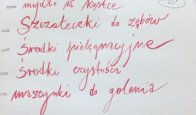 mydło w kostce
Szczoteczki do zębów
Środki pielęgnacyjne
Środki czystości
maszynki do golenia